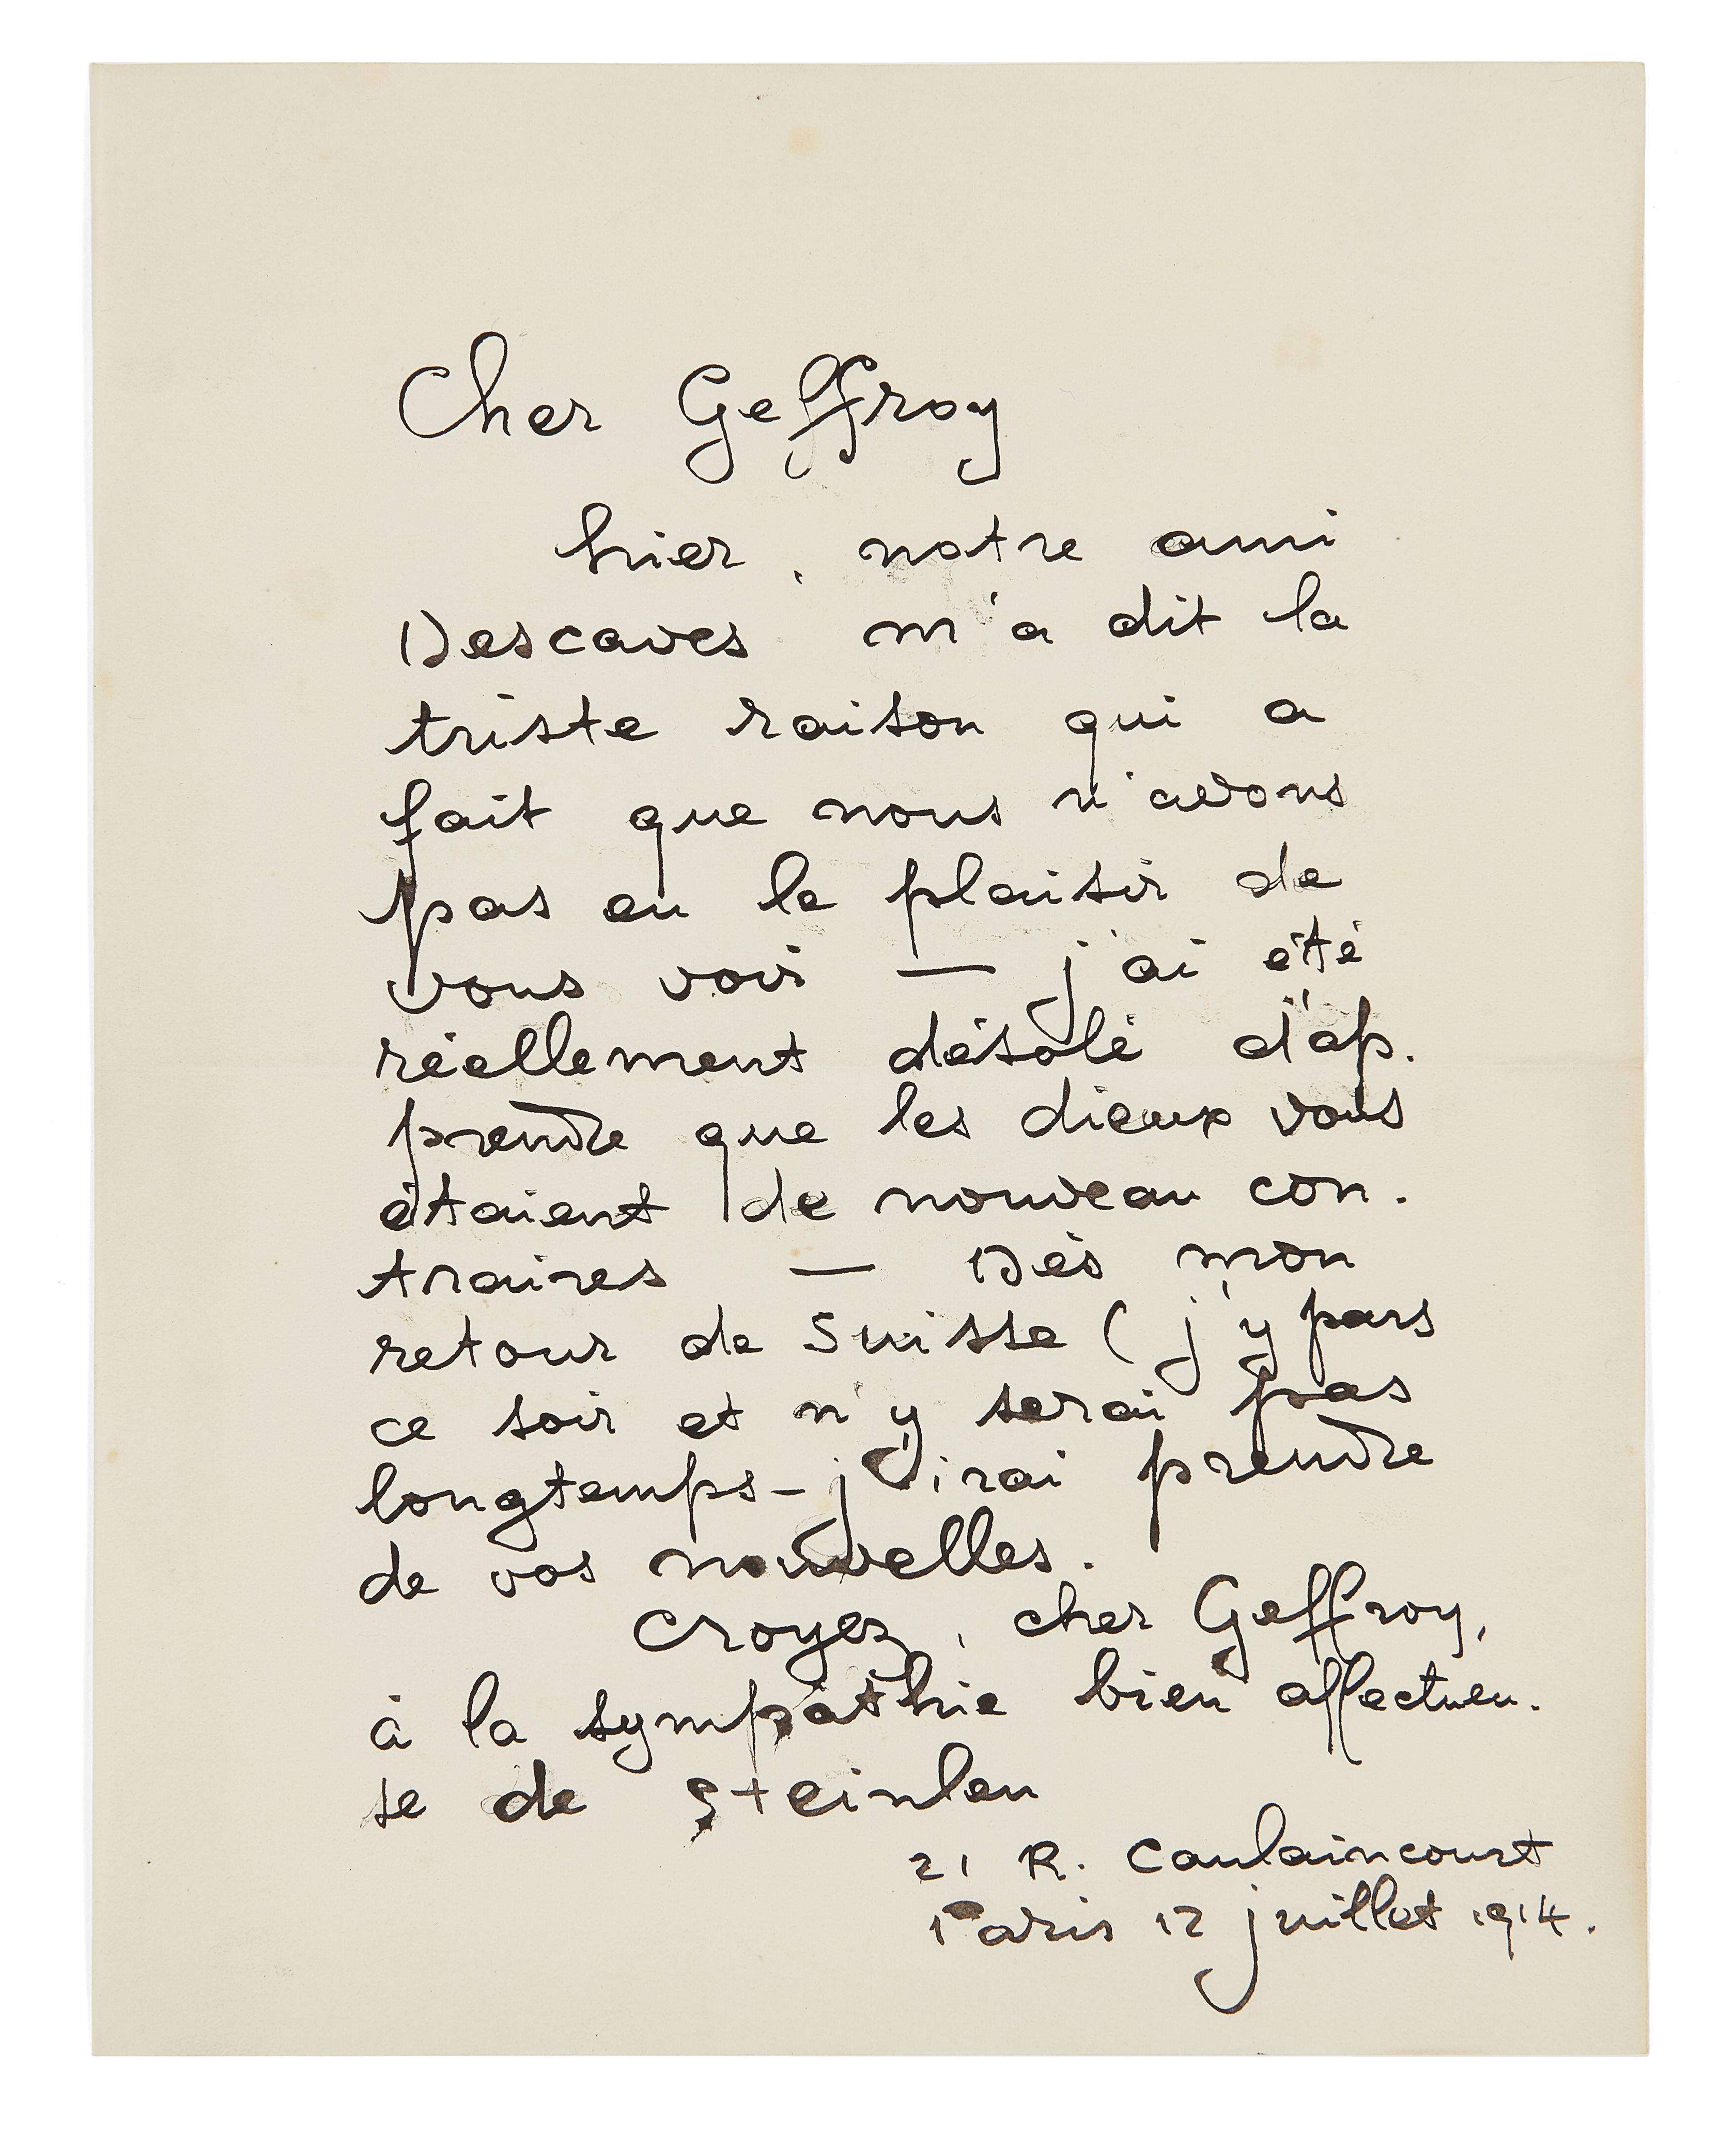 Cher Geffroy
hier, notre ami
Descaves m'a dit la
triste raison qui a
fait que nous n'avons
pas eu le plaisir de
vous voir — j'ai été
réellement désolé d'ap-
prendre que les dieux vous
étaient de nouveau con-
traires — Dès mon
retour de Suisse (j'y pars
ce soir et n'y serai pas
longtemps - j'irai prendre
de vos nouvelles.
Croyez, cher Geffroy,
à la sympathie bien affectueu-
se de Steinlen
21 R. Caulaincourt
Paris 12 juillet 1914.